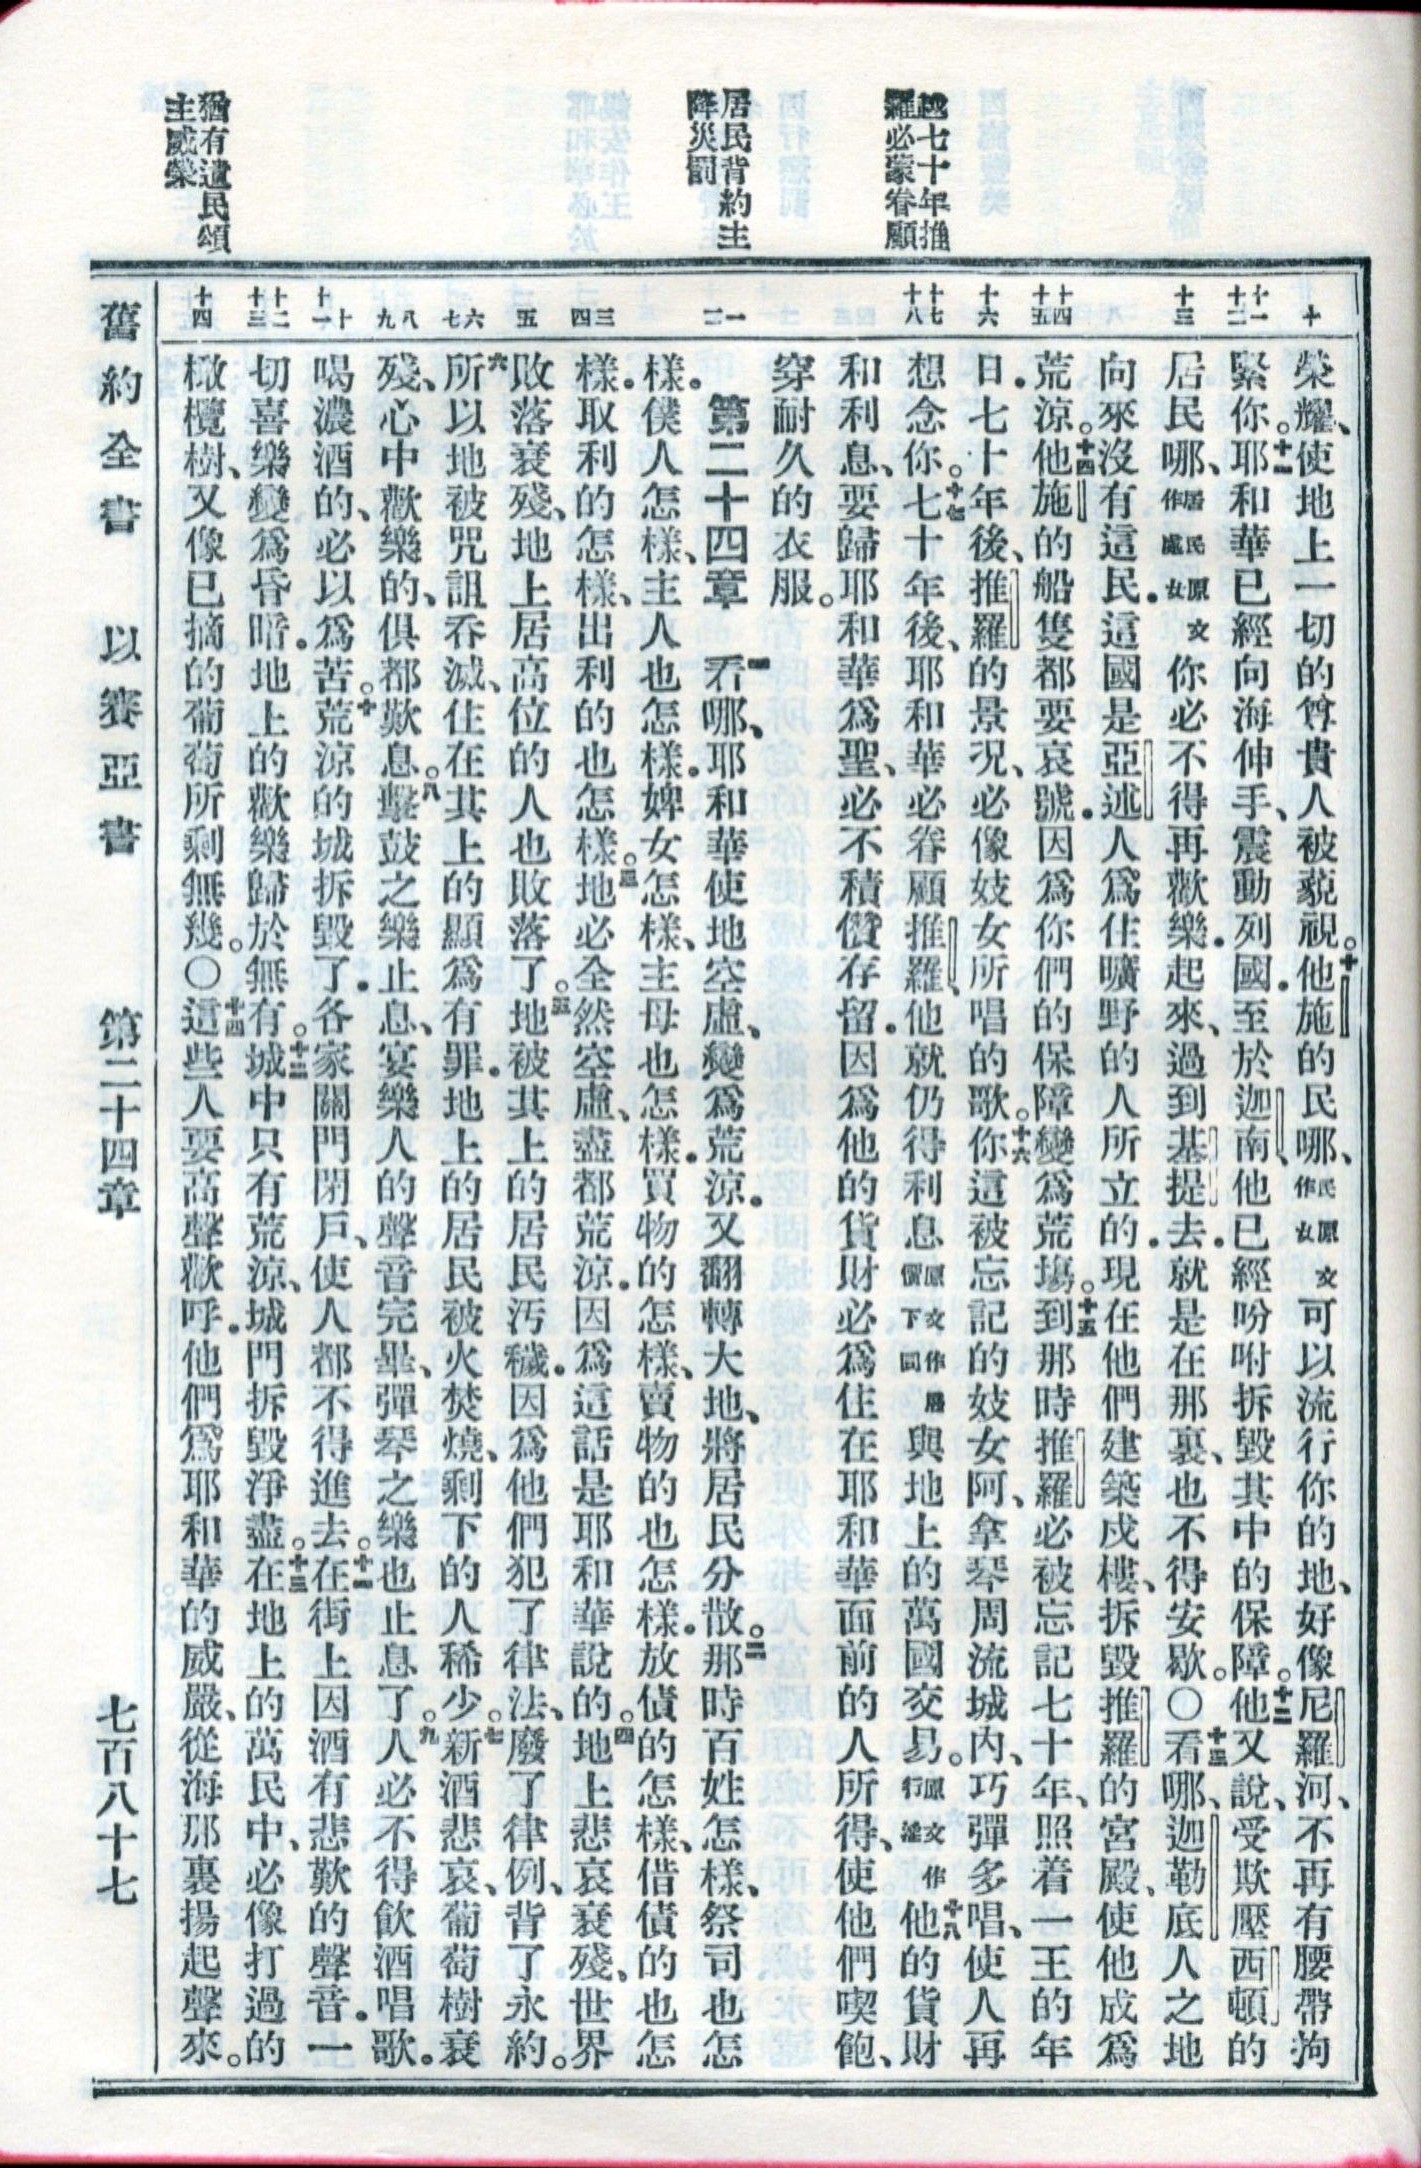 越七十年推
羅必蒙眷顧
居民背約主
降災罰
猶有遺民頌
主威榮
十
十一
十二
十三
十四
十五
十六
十七
十八
一
二
三
四
五
六
七
八
九
十
十一
十二
十三
十四
榮耀、使地上一切的尊貴人被藐視。十他施的民哪、民原文作女可以流行你的地、好像尼羅河、不再有腰帶拘
緊你。十一耶和華已經向海伸手、震動列國．至於迦南、他已經吩咐拆毀其中的保障。十二他又說、受欺壓西頓的
居民哪、居民原文作處女你必不得再歡樂．起來、過到基提去．就是在那裏、也不得安歇。○十三看哪、迦勒底人之地
向來沒有這民．這國是亞述人為住曠野的人所立的．現在他們建築戍樓、拆毀推羅的宮殿、使他成為
荒涼。十四他施的船隻都要哀號．因為你們的保障變為荒場。十五到那時推羅必被忘記七十年、照着一王的年
日．七十年後、推羅的景况、必像妓女所唱的歌。十六你這被忘記的妓女阿、拿琴周流城內、巧彈多唱、使人再
想念你。十七七十年後、耶和華必眷顧推羅、他就仍得利息原文作雇價下同與地上的萬國交易。原文作行淫十八他的貨財
和利息、要歸耶和華為聖、必不積儹存留．因為他的貨財必為住在耶和華面前的人所得、使他們喫飽、
穿耐久的衣服。
第二十四章　一看哪、耶和華使地空虛、變為荒涼．又翻轉大地、將居民分散。二那時百姓怎樣、祭司也怎
樣．僕人怎樣、主人也怎樣．婢女怎樣、主母也怎樣．買物的怎樣、賣物的也怎樣．放債的怎樣、借債的也怎
樣．取利的怎樣、出利的也怎樣。三地必全然空虛、盡都荒涼．因為這話是耶和華說的。四地上悲哀衰殘、世界
敗落衰殘、地上居高位的人也敗落了。五地被其上的居民汚穢．因為他們犯了律法、廢了律例、背了永約。
六所以地被咒詛吞滅、住在其上的顯為有罪．地上的居民被火焚燒、剩下的人稀少。七新酒悲哀、葡萄樹衰
殘、心中歡樂的、俱都歎息。八擊鼓之樂止息、宴樂人的聲音完畢、彈琴之樂也止息了。九人必不得飲酒唱歌．
喝濃酒的、必以為苦。十荒涼的城拆毀了．各家關門閉戶、使人都不得進去。十一在街上因酒有悲歎的聲音．一
切喜樂變為昏暗．地上的歡樂歸於無有。十二城中只有荒涼、城門拆毀淨盡。十三在地上的萬民中、必像打過的
橄欖樹、又像已摘的葡萄所剩無幾。○十四這些人要高聲歡呼．他們為耶和華的威嚴、從海那裏揚起聲來。
舊約全書　以賽亞書　第二十四章　七百八十七